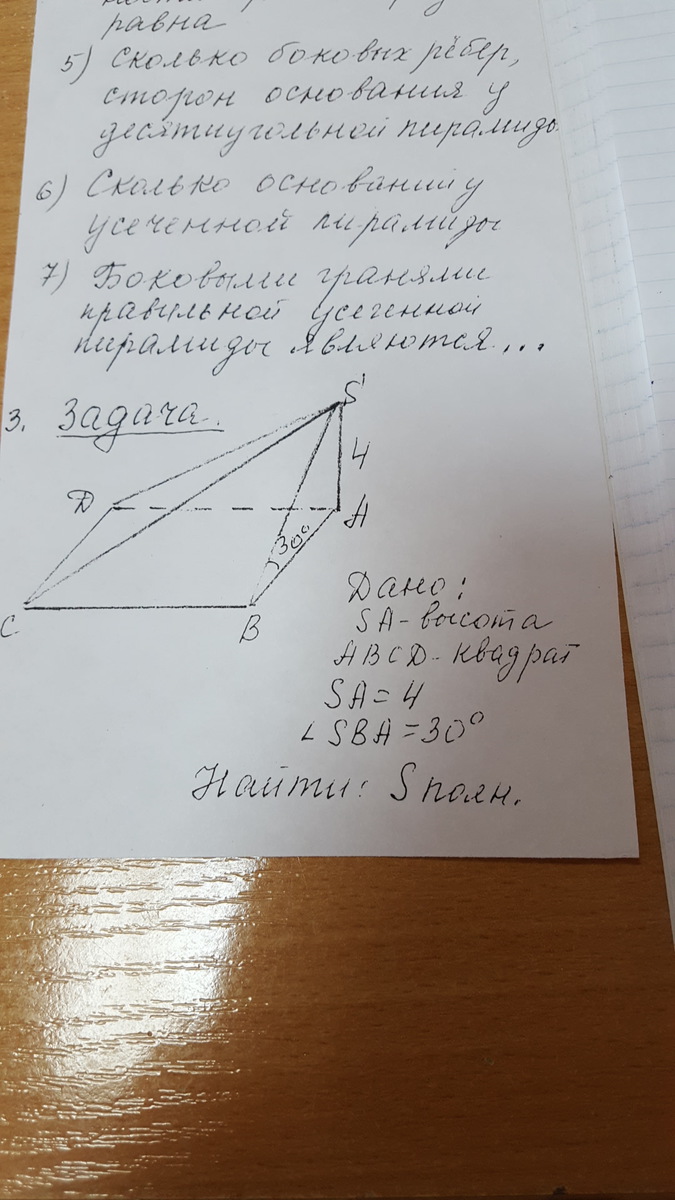 равна
5) Сколько боковых рёбер,
сторон основания у
десятиугольной пирамиды
6) Сколько оснований у
усеченной пирамиды
7) Боковыми гранями
правильной усеченной
пирамиды являются...
3. Задача.
S
4
D
A
30°
C
B
Дано:
SA - высота
ABCD - квадрат
SA = 4
∠ SBA = 30°
Найти: S полн.